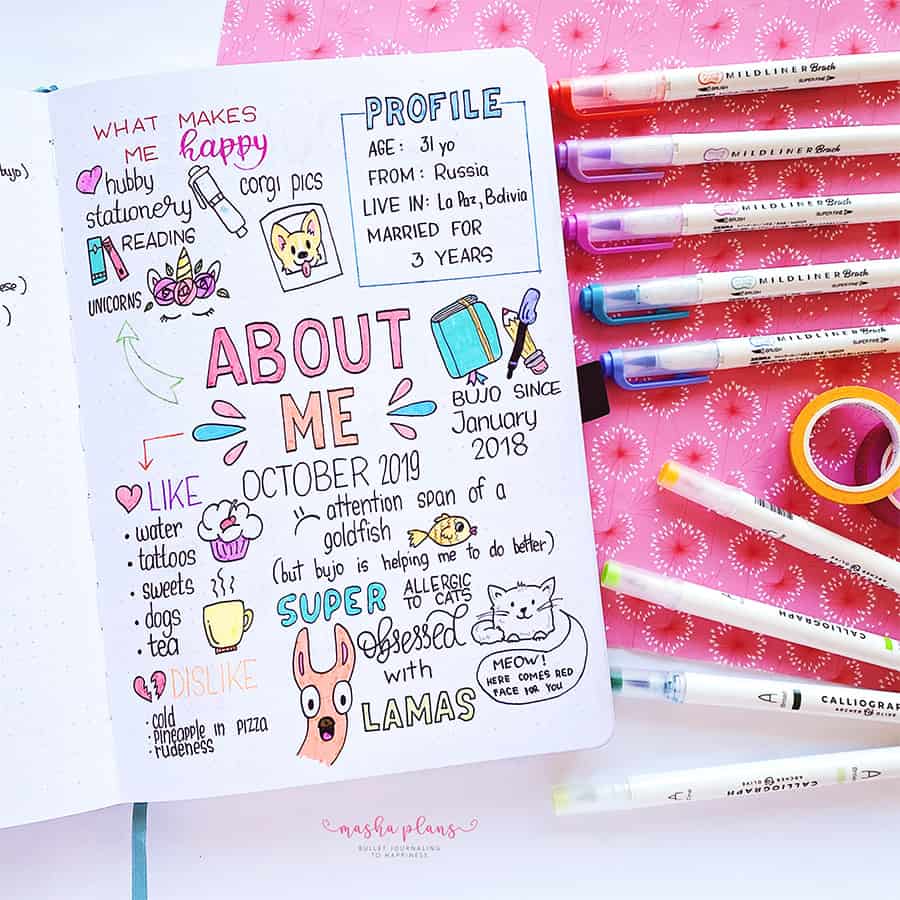 WHAT MAKES
ME happy
hubby
stationery
corgi pics
READING
UNICORNS
PROFILE
AGE: 31 yo
FROM: Russia
LIVE IN: La Paz, Bolivia
MARRIED FOR
3 YEARS
ABOUT
ME
OCTOBER 2019
BUJO SINCE
January
2018
LIKE
• water
• tattoos
• sweets
• dogs
• tea
DISLIKE
• cold
• pineapple in pizza
• rudeness
attention span of a
goldfish
(but bujo is helping me to do better)
SUPER
ALLERGIC
TO CATS
obsessed
with
LAMAS
MEOW!
HERE COMES RED
FACE FOR YOU
MILDLINER Brush
BRUSH
SUPER FINE
MILDLINER Brush
MILDLINER Brush
SUPER FINE
MILDLINER Brush
BRUSH
SUPER FINE
MILDLINER Brush
BRUSH
SUPER FINE
CALLIOGRAPH
A
CALLIOGRAPH
ARCHER & OLIVE
A
CALLIOGRAPH
ARCHER & OLIVE
A
masha plans
BULLET JOURNALING
TO HAPPINESS